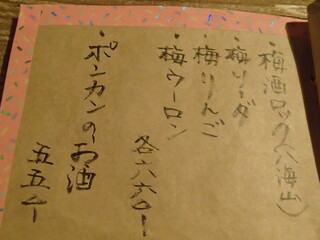 ・梅酒ロック(八海山)
・梅ソーダ
・梅りんご
・梅ウーロン
各六六〇ー
・ポンカンのお酒
五五〇ー